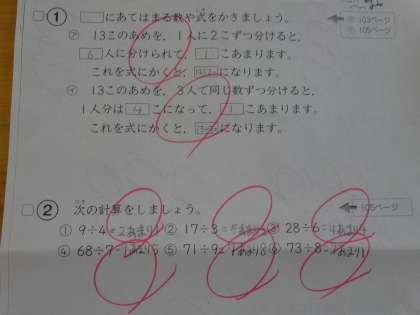 ① □にあてはまる数や式をかきましょう。
103ページ
105ページ
㋐ 13このあめを、1人に2こずつ分けると、
6人に分けられて、1こあまります。
これを式にかくと、になります。
㋑ 13このあめを、3人で同じ数ずつ分けると、
1人分は4こになって、1こあまります。
これを式にかくと、になります。
② 次の計算をしましょう。
105ページ
① 9÷4=2あまり1 ② 17÷3=5あまり ③ 28÷6=4あまり4
④ 68÷7= ⑤ 71÷9= ⑥ 73÷8=